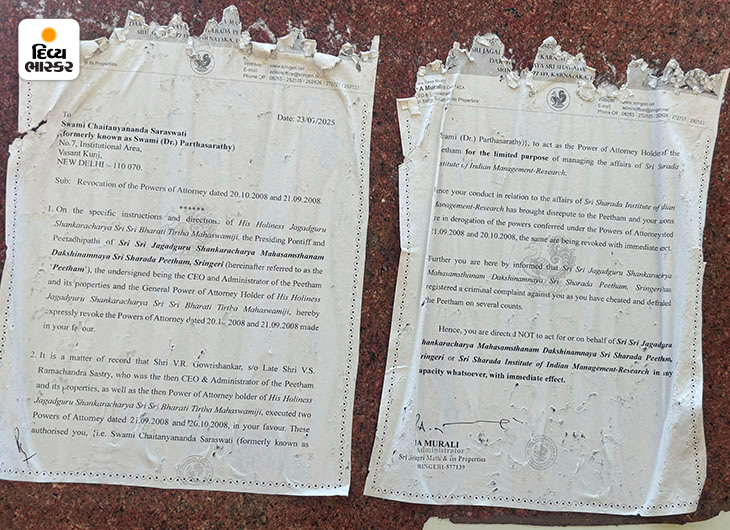 દિવ્ય
ભાસ્કર
Date: 23/07/2025
To
Swami Chaitanyananda Saraswati
(formerly known as Swami (Dr.) Parthasarathy)
No.7, Institutional Area,
Vasant Kunj,
NEW DELHI – 110 070.
Sub: Revocation of the Powers of Attorney dated 20.10.2008 and 21.09.2008.
******
1. On the specific instructions and direction of His Holiness Jagadguru
Shankaracharya Sri Sri Bharati Tirtha Mahaswamiji, the Presiding Pontiff and
Peetadhipathi of Sri Sri Jagadguru Shankaracharya Mahasamsthanam
Dakshinamnaya Sri Sharada Peetham, Sringeri (hereinafter referred to as the
'Peetham'), the undersigned being the CEO and Administrator of the Peetham
and its properties and the General Power of Attorney Holder of His Holiness
Jagadguru Shankaracharya Sri Sri Bharati Tirtha Mahaswamiji, hereby
expressly revoke the Powers of Attorney dated 20.1 2008 and 21.09.2008 made
in your favour.
2. It is a matter of record that Shri V.R. Gowrishankar, s/o Late Shri V.S.
Ramachandra Sastry, who was the then CEO & Administrator of the Peetham
and its properties, as well as the then Power of Attorney holder of His Holiness
Jagadguru Shankaracharya Sri Sri Bharati Tirtha Mahaswamiji, executed two
Powers of Attorney dated 21.09.2008 and 20.10.2008, in your favour. These
authorised you, i.e. Swami Chaitanyananda Saraswati (formerly known as
A MURALI
ami (Dr.) Parthasarathy)}, to act as the Power of Attorney Holder of the
eetham for the limited purpose of managing the affairs of Sri Sarada
stitute of Indian Management-Research.
ince your conduct in relation to the affairs of Sri Sharada Institute of dian
Management-Research has brought disrepute to the Peetham and your ions
re in derogation of the powers conferred under the Powers of Attorney ted
21.09.2008 and 20.10.2008, the same are being revoked with immediate ect.
Further you are here by informed that Sri Sri Jagadguru Shankaracarya
Mahasamsthanam Dakshinamnaya Sri Sharada Peetham, Sringeri has
registered a criminal complaint against you as you have cheated and defraued
the Peetham on several counts.
Hence, you are directed NOT to act for or on behalf of Sri Sri Jagadguru
hankaracharya Mahasamsthanam Dakshinamnaya Sri Sharada Peetham,
ringeri or Sri Sharada Institute of Indian Management-Research in any
capacity whatsoever, with immediate effect.
A MURALI
Administrator
Sringeri Math & its Properties
RINGERI-577139